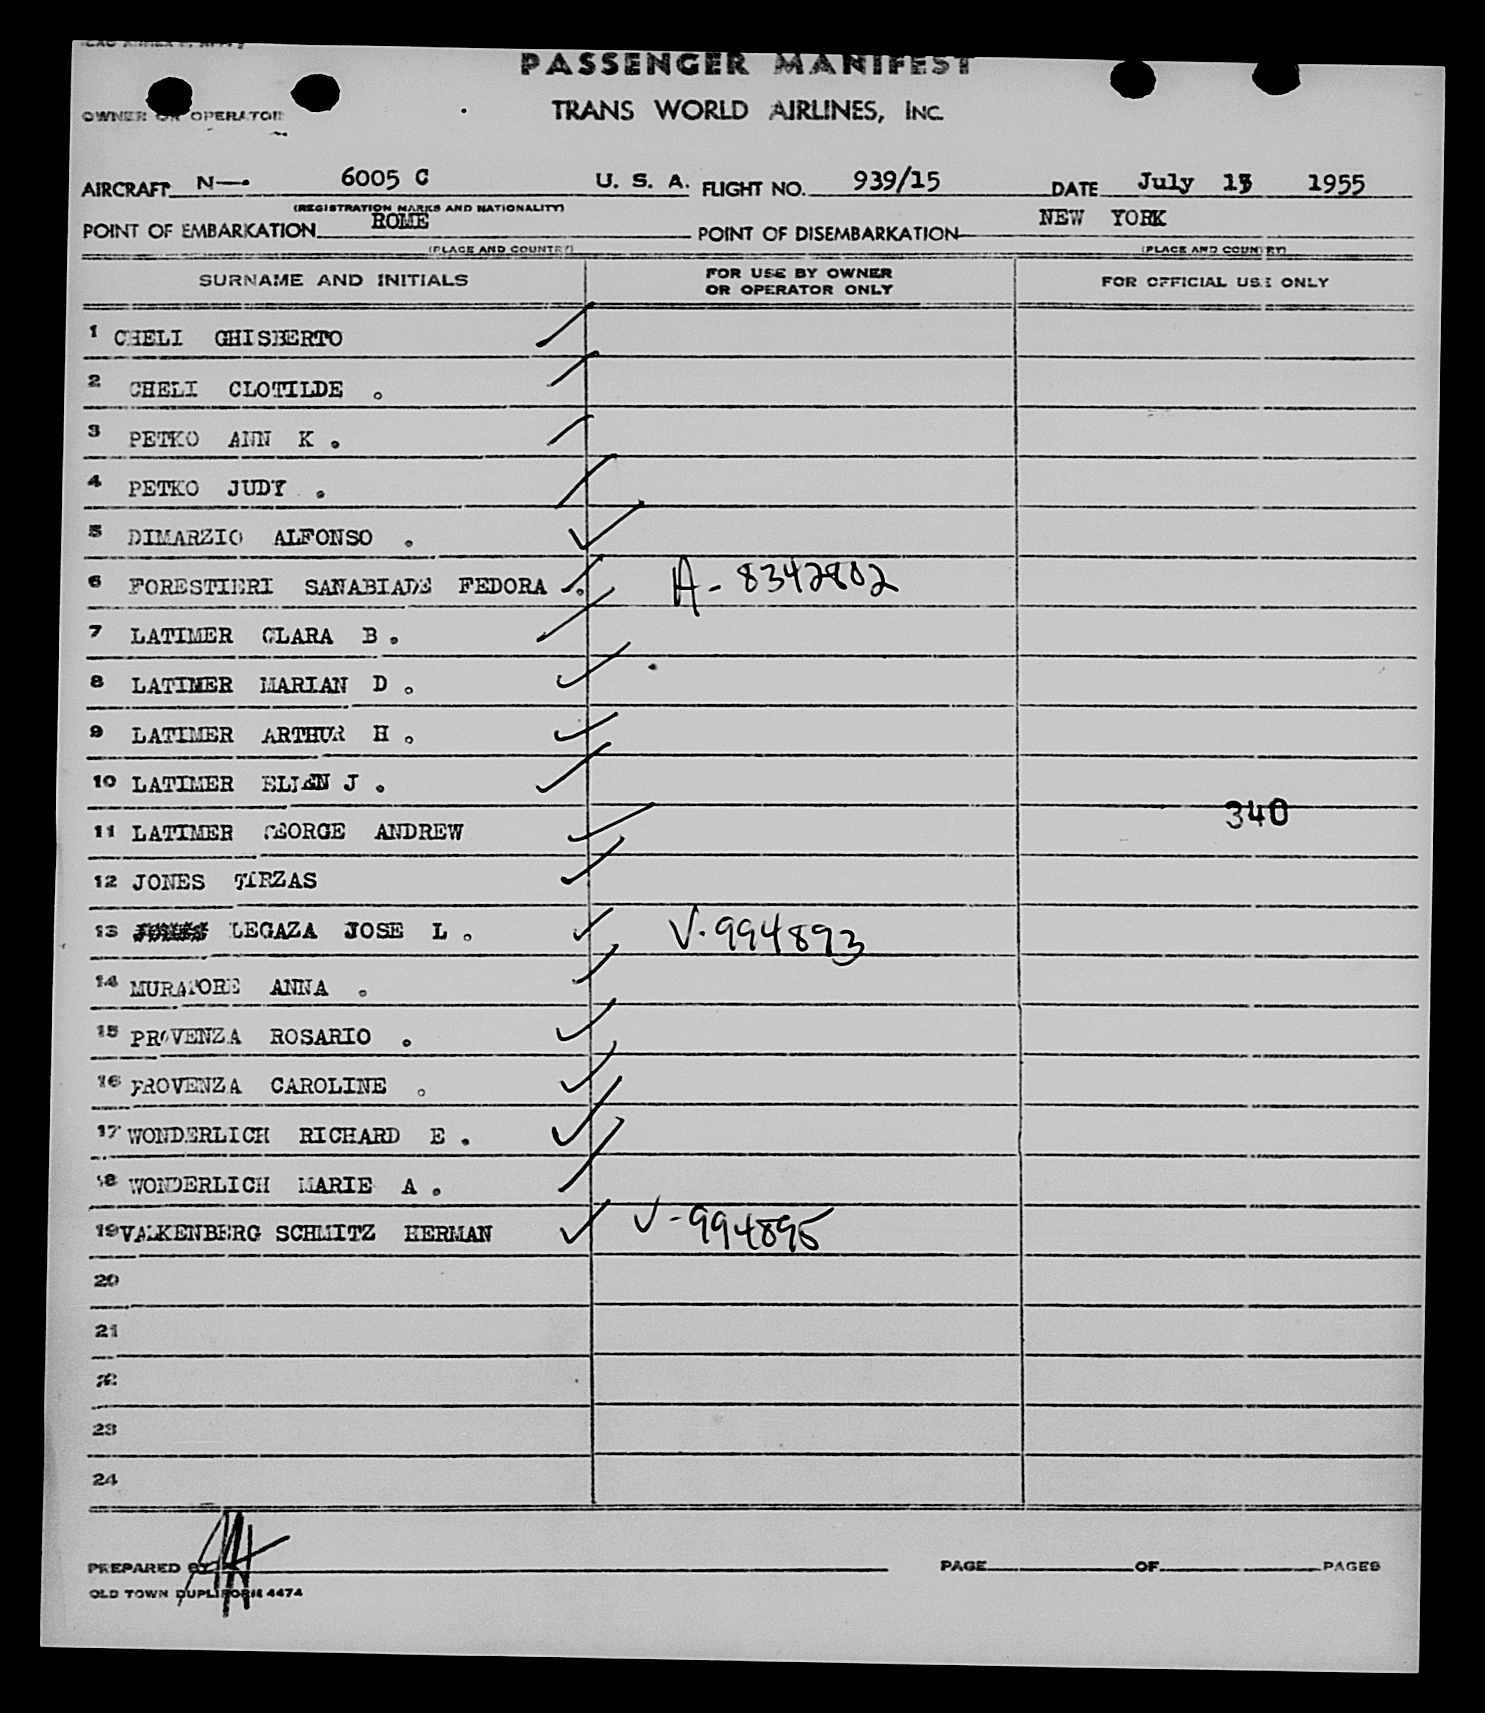 PASSENGER MANIFEST
OWNER OR OPERATOR
TRANS WORLD AIRLINES, INC.
AIRCRAFT N—. 6005 C U. S. A. FLIGHT NO. 939/15 DATE July 1955
(REGISTRATION MARKS AND NATIONALITY)
POINT OF EMBARKATION ROME POINT OF DISEMBARKATION NEW YORK
(PLACE AND COUNTRY) (PLACE AND COUNTRY)
SURNAME AND INITIALS FOR USE BY OWNER OR OPERATOR ONLY FOR OFFICIAL USE ONLY
1 CHELI GHISBERTO
2 CHELI CLOTILDE .
3 PETKO ANN K .
4 PETKO JUDY .
5 DIMARZIO ALFONSO .
6 FORESTIERI SANABIADE FEDORA . A-8342802
7 LATIMER CLARA B .
8 LATIMER MARIAN D .
9 LATIMER ARTHUR H .
10 LATIMER J .
340
11 LATIMER GEORGE ANDREW
12 JONES TIRZAS
13 LEGAZA JOSE L . V-994893
14 MURATORE ANNA .
15 PROVENZA ROSARIO .
16 PROVENZA CAROLINE .
17 WONDERLICH RICHARD E .
18 WONDERLICH MARIE A .
19 VALKENBERG SCHMITZ HERMAN V-994895
20
21
22
23
24
PREPARED BY PAGE OF PAGES
OLD TOWN DUPLIFORM 4474